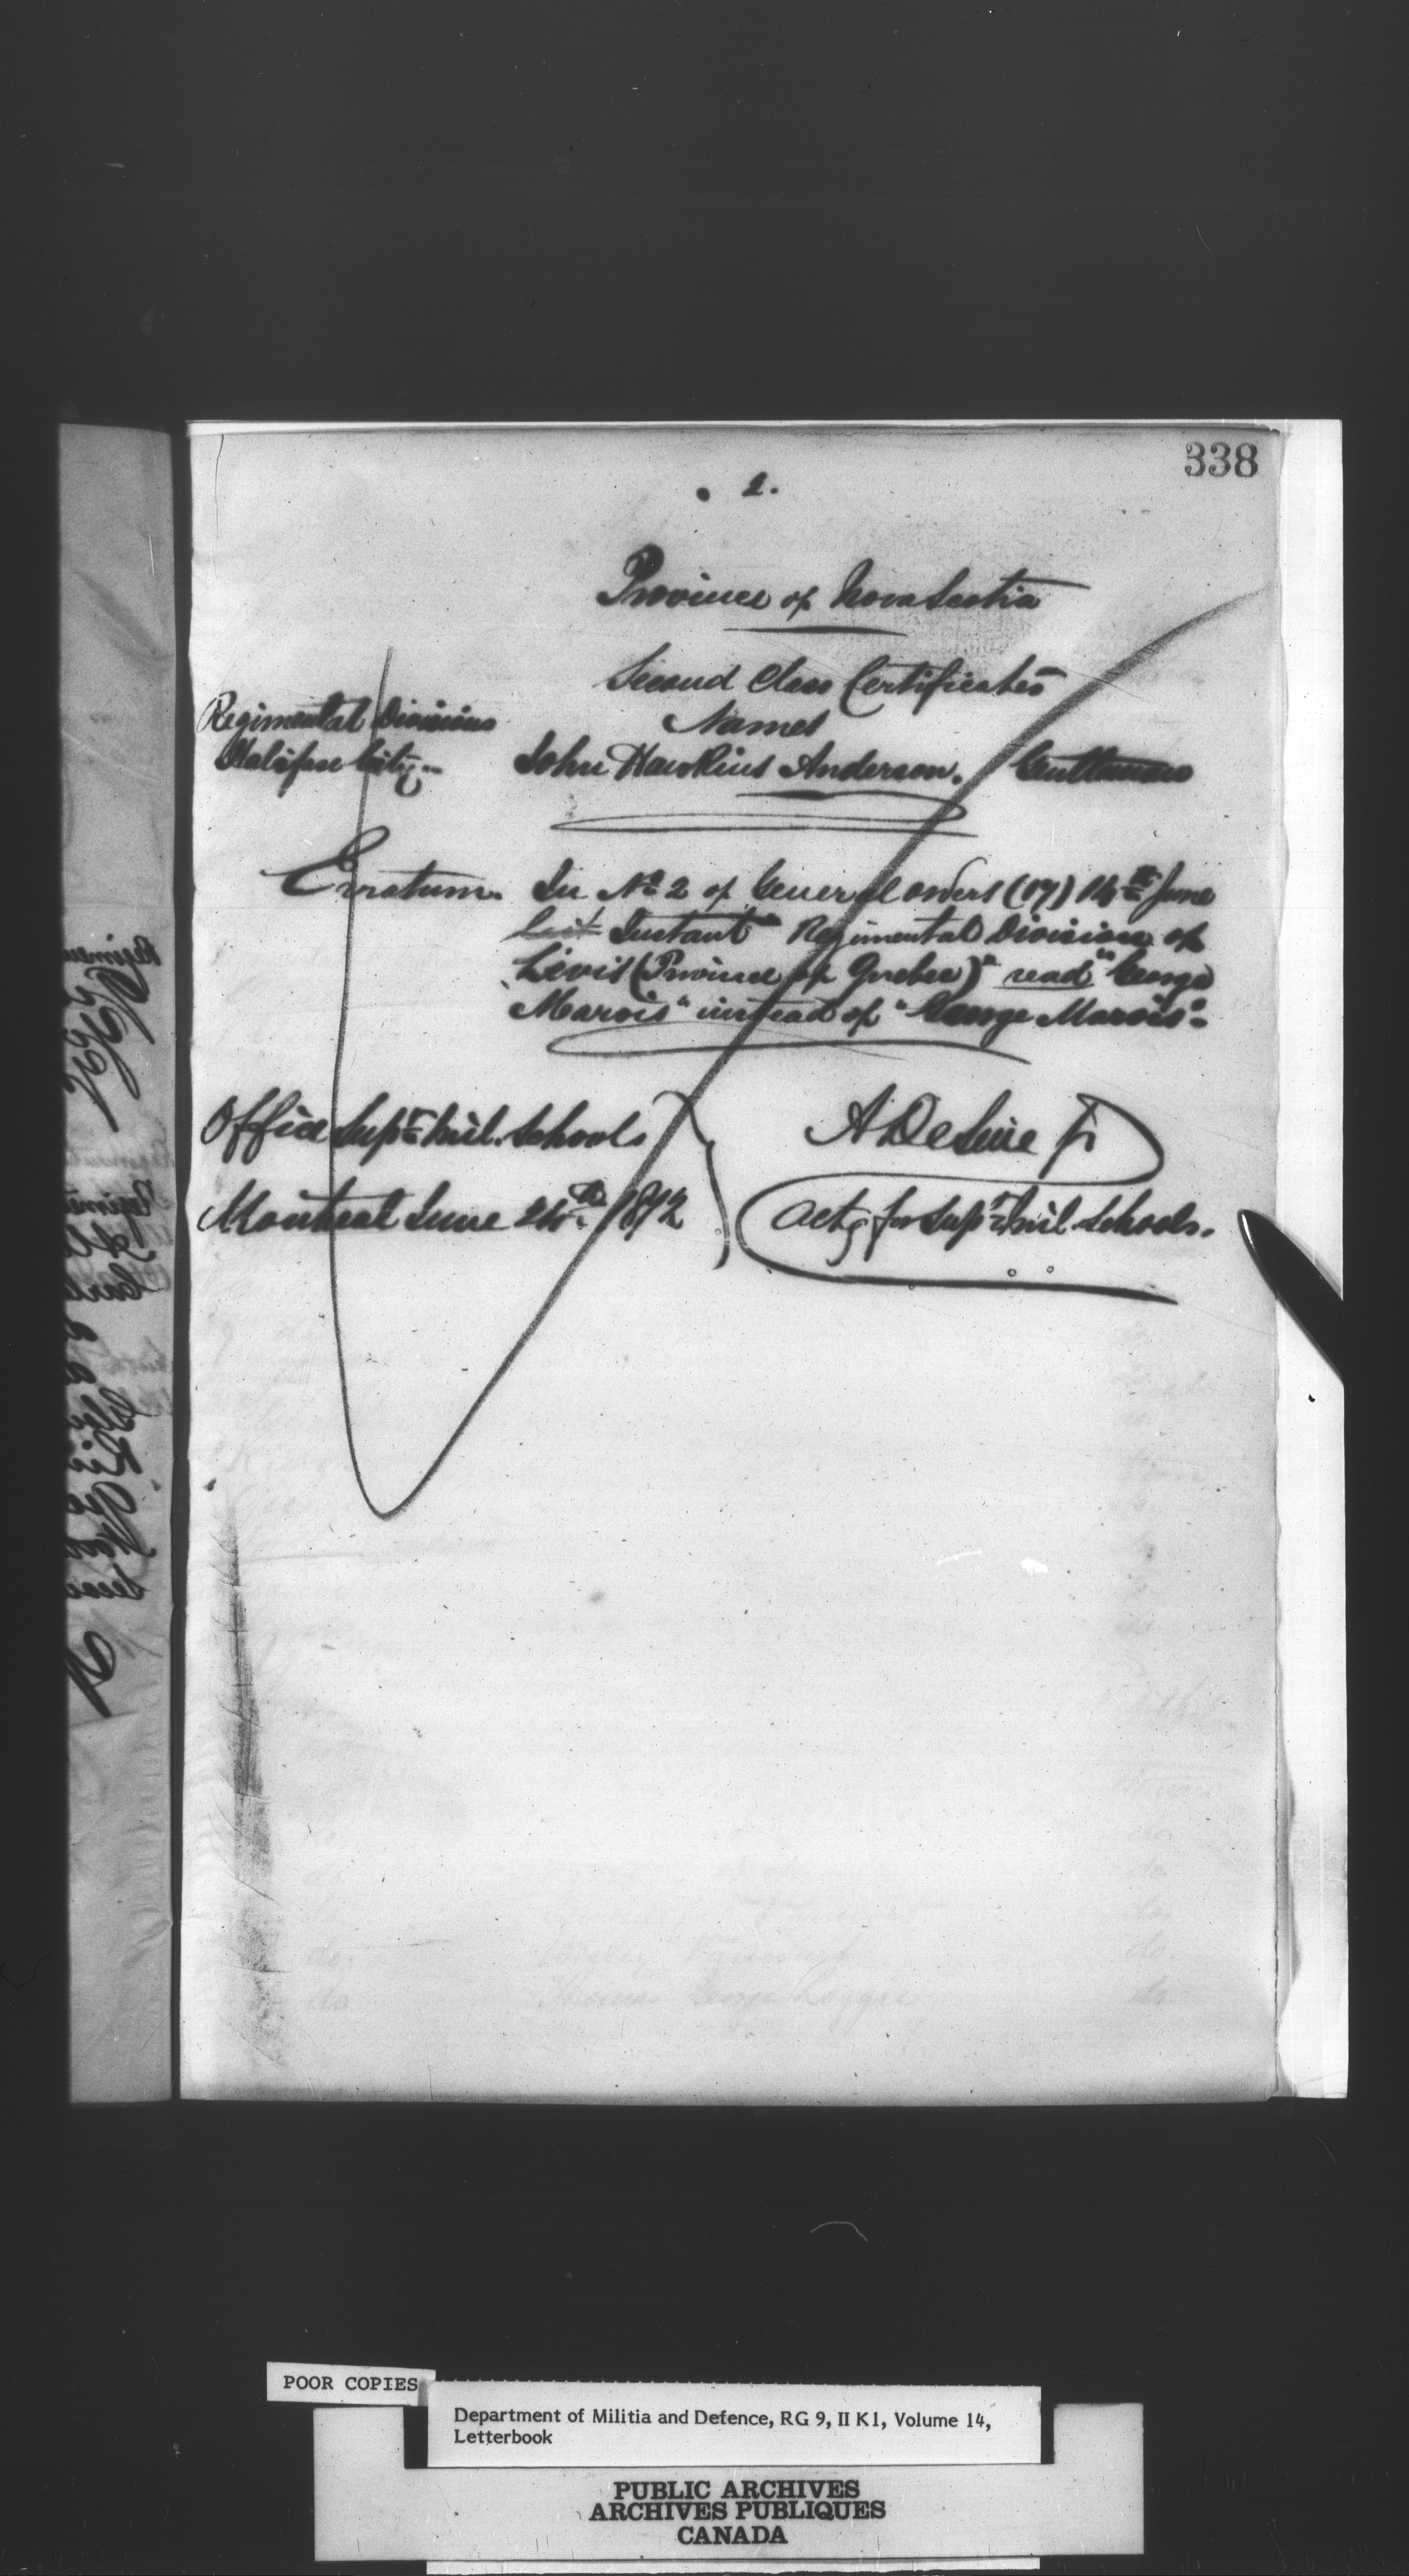 338
2.
Province of Nova Scotia
Second Class Certificates
Regimental Divisions Names
Halifax City John Hawkins Anderson. Gentleman
Erratum. In No 2 of General orders (17) 14th June
last Instant "Regimental Division of
Levis (Province of Quebec)" read "George
Marois" instead of "George Marois".
Office Supt Mil. Schools
Montreal June 24th 1872
A De Jr
Actg for Supt Mil Schools.
POOR COPIES
Department of Militia and Defence, RG 9, II K1, Volume 14,
Letterbook
PUBLIC ARCHIVES
ARCHIVES PUBLIQUES
CANADA